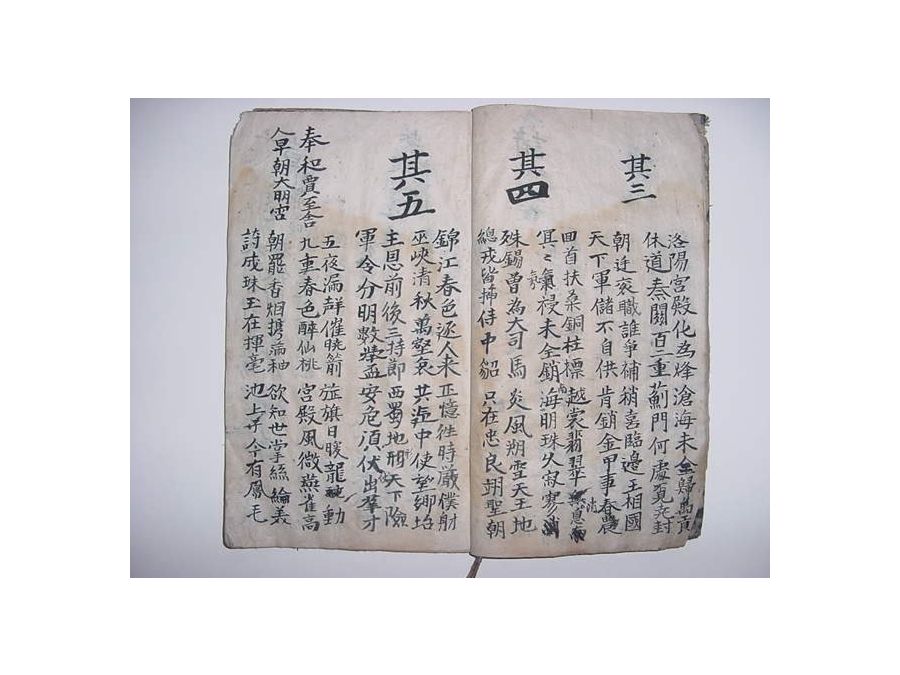 其三
洛陽宮殿化為烽 滄海未全歸禹貢
休道秦關百二重 薊門何處覓堯封
朝廷袞職誰爭補 稍喜臨邊王相國
天下軍儲不自供 肯銷金甲事春農
其四
回首扶桑銅柱標 越裳翡翠無息
冥々氛祲未全銷 南海明珠久寂寥
殊錫曾為大司馬 炎風朔雪天王地
總戎皆插侍中貂 只在忠良翊聖朝
其五
錦江春色逐人來 正憶往時嚴僕射
巫峽清秋萬壑哀 共迎中使望鄉坮
主恩前後三持節 西蜀地形天下險
軍令分明數舉盃 安危須仗出羣才
奉和賈至舍
人早朝大明宮
五夜漏聲催曉箭 旌旗日暖龍蛇動
九重春色醉仙桃 宮殿風微燕雀高
朝罷香烟携滿袖 欲知世掌絲綸美
詩成珠玉在揮毫 池上于今有鳳毛